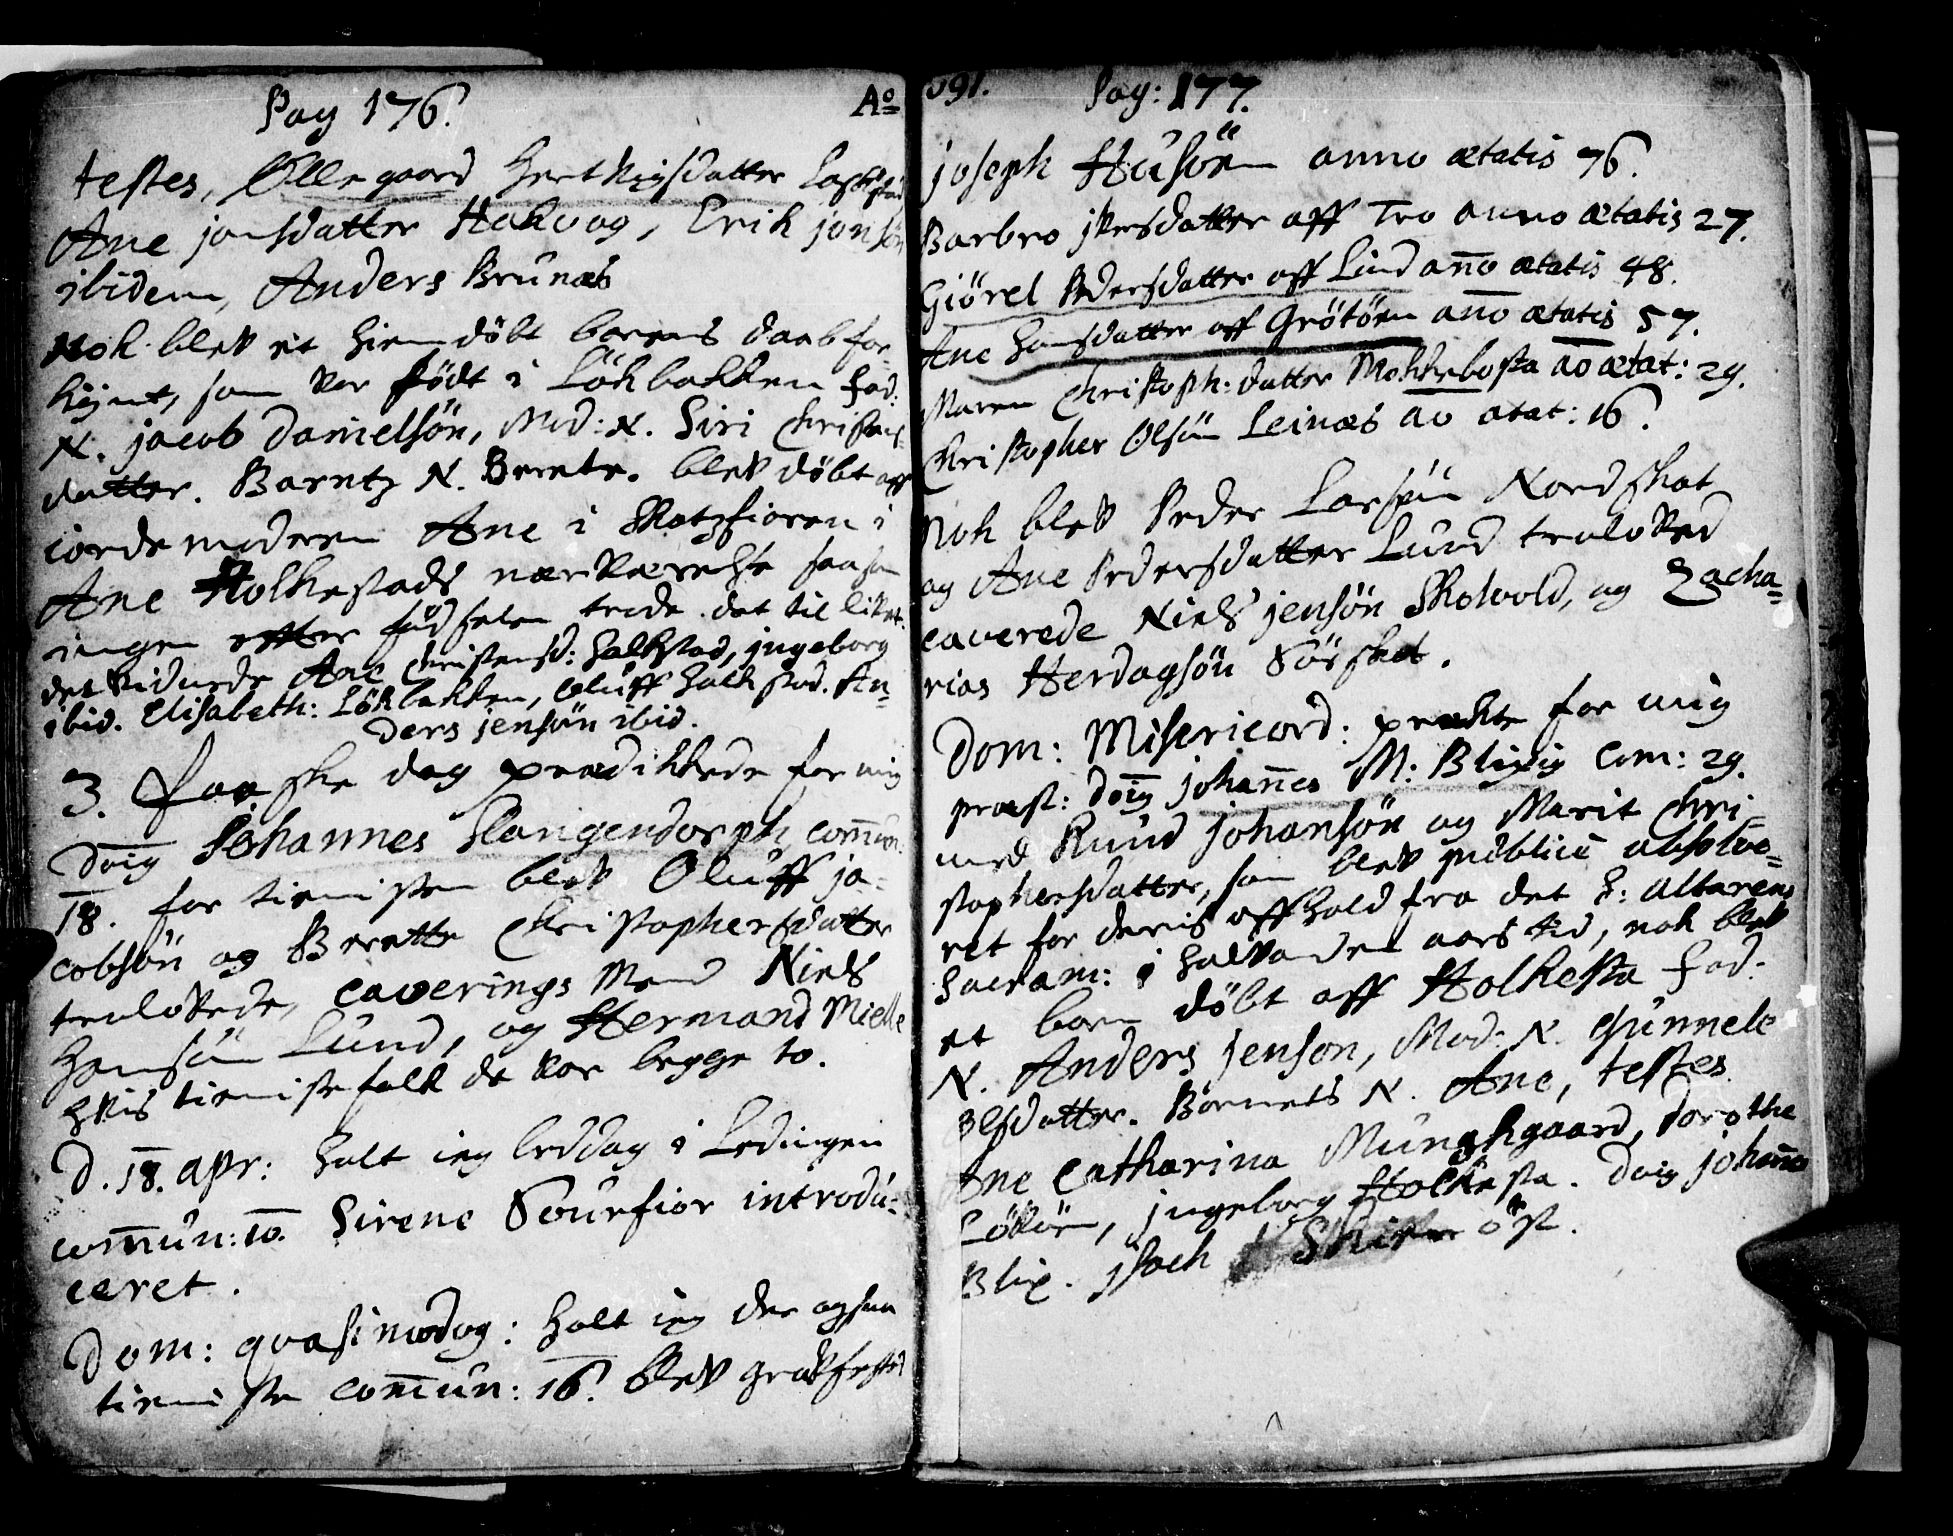 Pag 176. Ao
testes, Ollegaard Hertvigsdatter
Ane jonsdatter Hakvog, Erik jonsøn
ibidem, Anders Brunæs
Nok blev et hiemdøbt barns daab for-
kynt, som var født i Løkbakken fad:
N. jacob Danielsøn, Mod: N. Siri Christens
datter. Barntz N. Berete. blev døbt aff
iordemoderen Ane i Skotzfioren i
Ane Holkestads nærværelse saasom
ingen effter fødselen trode det til livet.
det vidnede Ane Christensd: Holkstad, jngeborg
ibid. Elisabeth: Løkbakken, Oluff Holkstad. An-
ders jensøn ibid.
3. Paaske dag prædikkede for mig
Dnig Johannes Hangendorph, commun.
18. for tienisten blev Oluff ja-
cobsøn og Berette Christophersdatter
trolovede, caverings Mend Niels
Hansøn Lund, og Hermand Mielle
hvis tienistefolk de var begge to.
D. 18. apr: holt ieg beddag i Ledingen
commun: 10. Sirene Sourfior introdu-
ceret.
Dom: qvasimodog: holt ieg der ogsaa
tieniste commun: 16. blev gravfested
691. Pag: 177.
joseph Husøen anno ætatis 76.
Barbro jversdatter aff Tro anno ætatis 27.
Giørel Pedersdatter aff Lind ano ætatis 48.
Ane Hansdatter aff Grøtøen ano ætatis 57.
Maren Christoph: datter Mokkebosta ao ætat: 29.
Christopher Olsøn Leinæs ao ætat: 16.
Nok blev Peder Larsøn Nordskot
og Ane Pedersdatter Lund troloved
caverede Niels jensøn Skolvold, og Zacha-
rias Herdagsøn Sørskot.
Dom: Misericord: prækte for mig
præst: Dnig johannes M: Blixig Com: 29.
med Knud johansøn og Marit Chri-
stophersdatter, som blev publicè absolve-
ret for deris affhold fra det H: altarens
Sacram: i halvandet aars tid, nok blev
et barn døbt aff Holkesta fad:
N. Anders jenson, Mod: N. Gunnele
Olsdatter. Børnets N. Ane, testes
Ane Catharina Munchgaard, Dorothe
Løvøen, jngeborg Holkesta. Dnig johannes
Blix. jsach Skien øst.